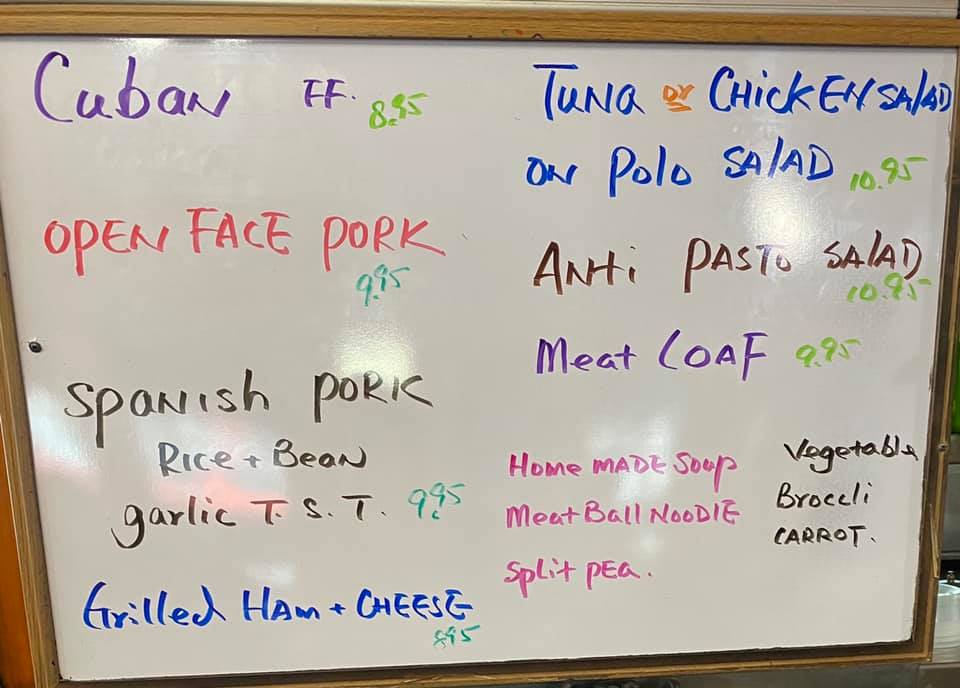 Cuban FF. 8.95
OPEN FACE PORK
9.95
Spanish PORK
Rice + Bean
garlic T. S. T. 9.95
Grilled HAm + CHEESE
8.95
TUNA or CHickEN SAlAD
ON Polo SAlAD 10.95
ANti PASTO SAlAD
10.95
Meat LOAF 9.95
Home MADE Soup
Meat Ball NooDlE
Split PEa.
Vegetable
Broccli
CARROT.